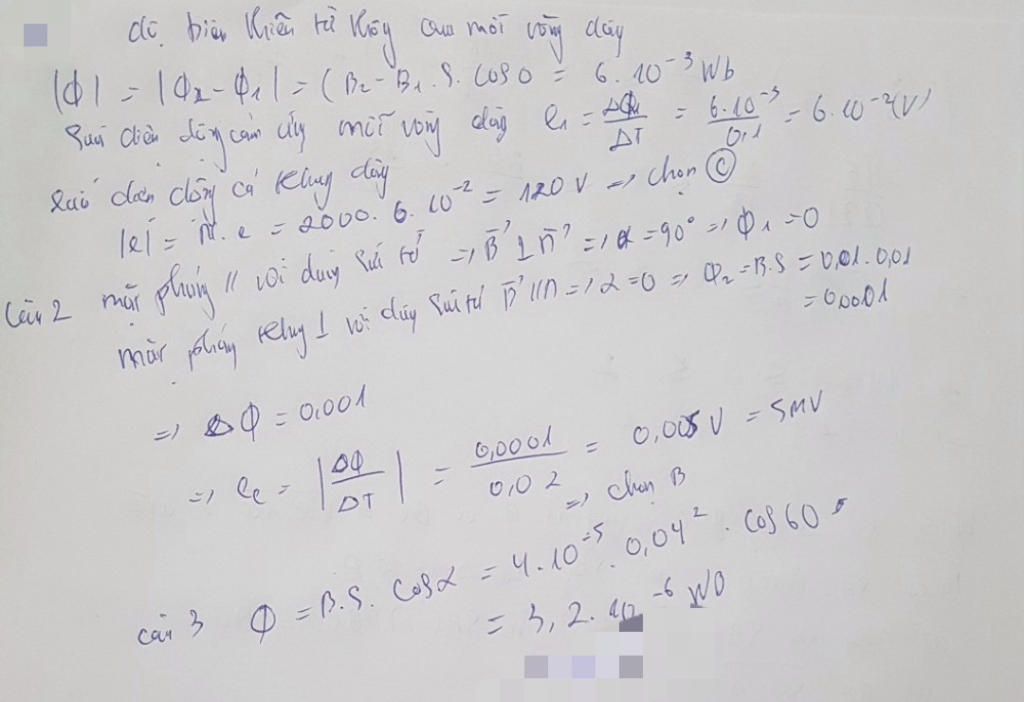 độ biến thiên từ thông qua mỗi vòng dây
|Φ| = |Φ₂ - Φ₁| = (B₂ - B₁ . S. cos 0 = 6. 10⁻³ Wb
Suất điện động cảm ứng mỗi vòng dây e₁ = ΔΦ₁/ΔT = 6.10⁻³/0,1 = 6. 10⁻²(V)
động cả khung dây
|e| = N. e = 2000. 6. 10⁻² = 120 V => chọn Ⓒ
Câu 2 mặt phẳng // với đường sức từ => B⃗ ⊥ n⃗ => α = 90° => Φ₁ = 0
mặt phẳng khung ⊥ với đường sức từ B⃗ // n => α = 0 => Φ₂ = B.S = 0,01. 0,01
= 0,0001
=> ΔΦ = 0,001
=> e꜀ = |ΔΦ/ΔT| = 0,0001/0,02 = 0,005 V = 5MV
=> chọn B
câu 3 Φ = B.S. cosα = 4.10⁻⁵. 0,04². cos 60
= 3,2. 10⁻⁶ Wb